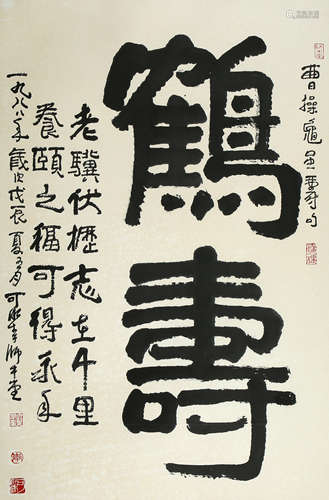 曹操龜虽壽句
鶴壽
老驥伏櫪志在千里
養頤之福可得永年
一九八八年歲次戊辰夏月可染師牛堂